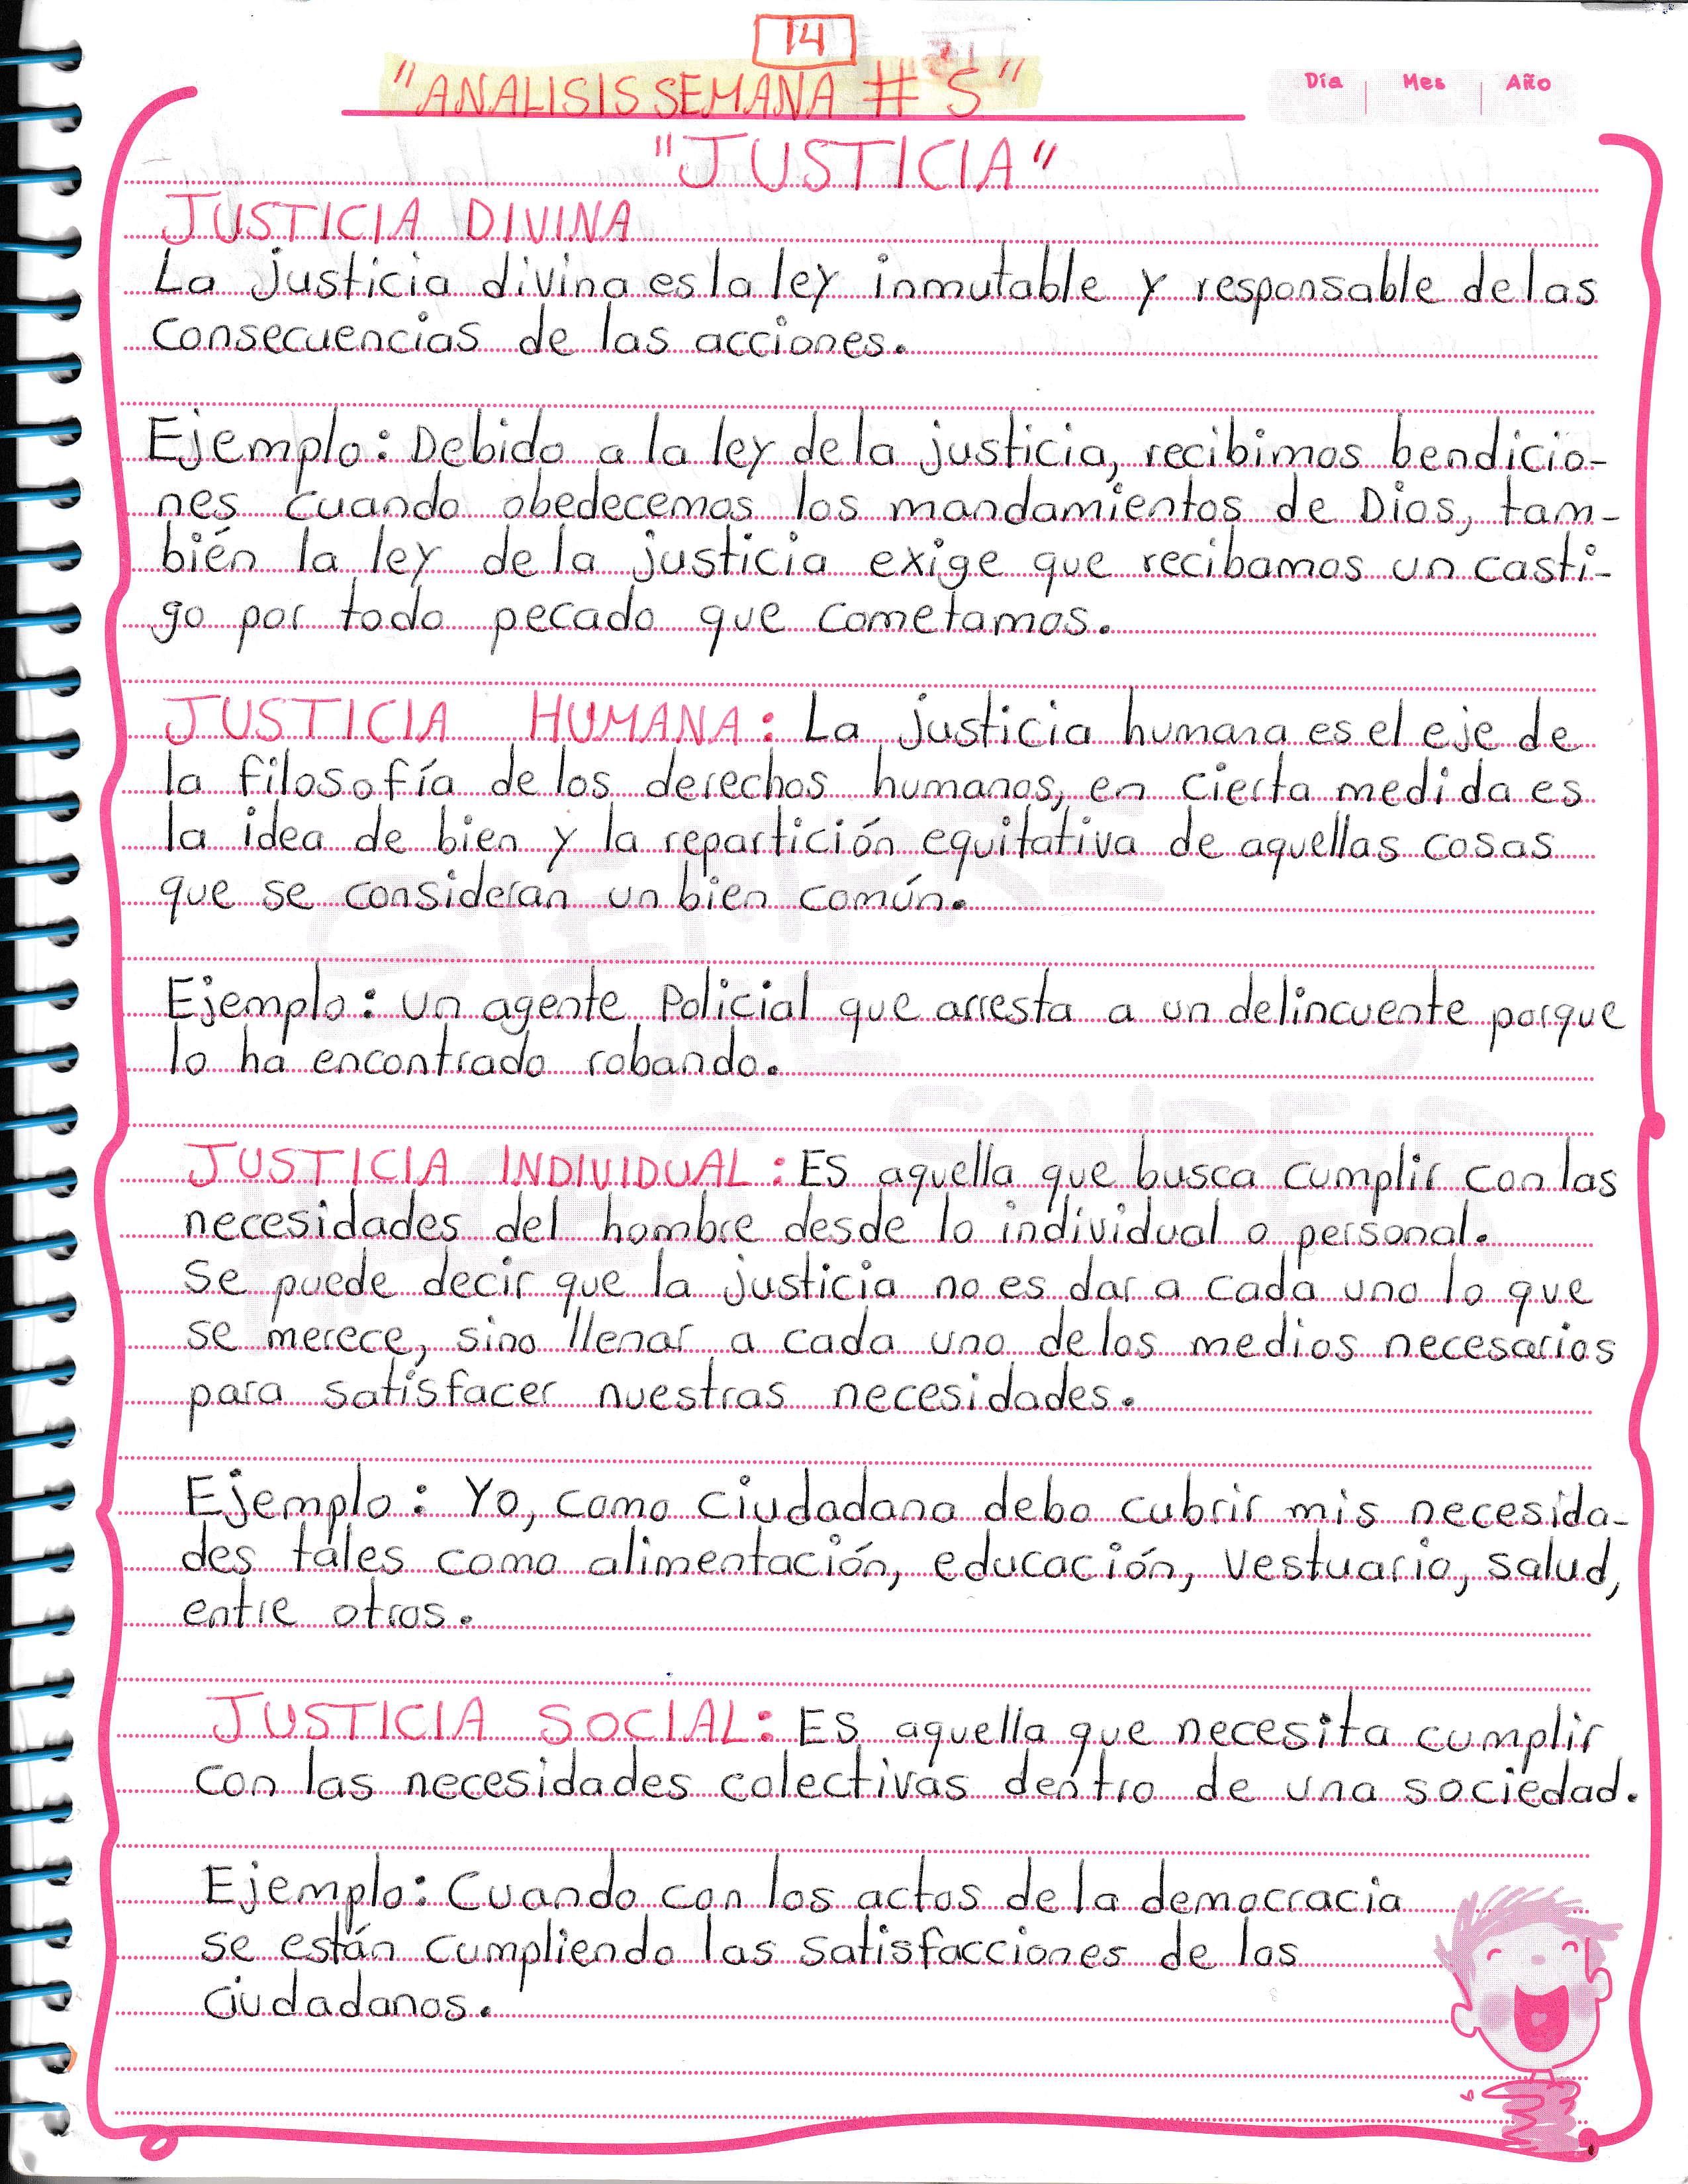 14
"ANALISIS SEMANA # 5"
Día Mes Año
"JUSTICIA"
JUSTICIA DIVINA
La justicia divina es la ley inmutable y responsable de las
consecuencias de las acciones.
Ejemplo: Debido a la ley de la justicia, recibimos bendicio-
nes cuando obedecemos los mandamientos de Dios, tam-
bién la ley de la justicia exige que recibamos un casti-
go por todo pecado que cometamos.
JUSTICIA HUMANA: La justicia humana es el eje de
la filosofía de los derechos humanos, en cierta medida es
la idea de bien y la repartición equitativa de aquellas cosas
que se consideran un bien común.
Ejemplo: un agente Policial que arresta a un delincuente porque
lo ha encontrado robando.
JUSTICIA INDIVIDUAL: Es aquella que busca cumplir con las
necesidades del hombre desde lo individual o personal.
Se puede decir que la justicia no es dar a cada uno lo que
se merece, sino llenar a cada uno de los medios necesarios
para satisfacer nuestras necesidades.
Ejemplo: Yo, como ciudadana debo cubrir mis necesida-
des tales como alimentación, educación, vestuario, salud,
entre otras.
JUSTICIA SOCIAL: Es aquella que necesita cumplir
con las necesidades colectivas dentro de una sociedad.
Ejemplo: Cuando con los actos de la democracia
se están cumpliendo las satisfacciones de los
ciudadanos.